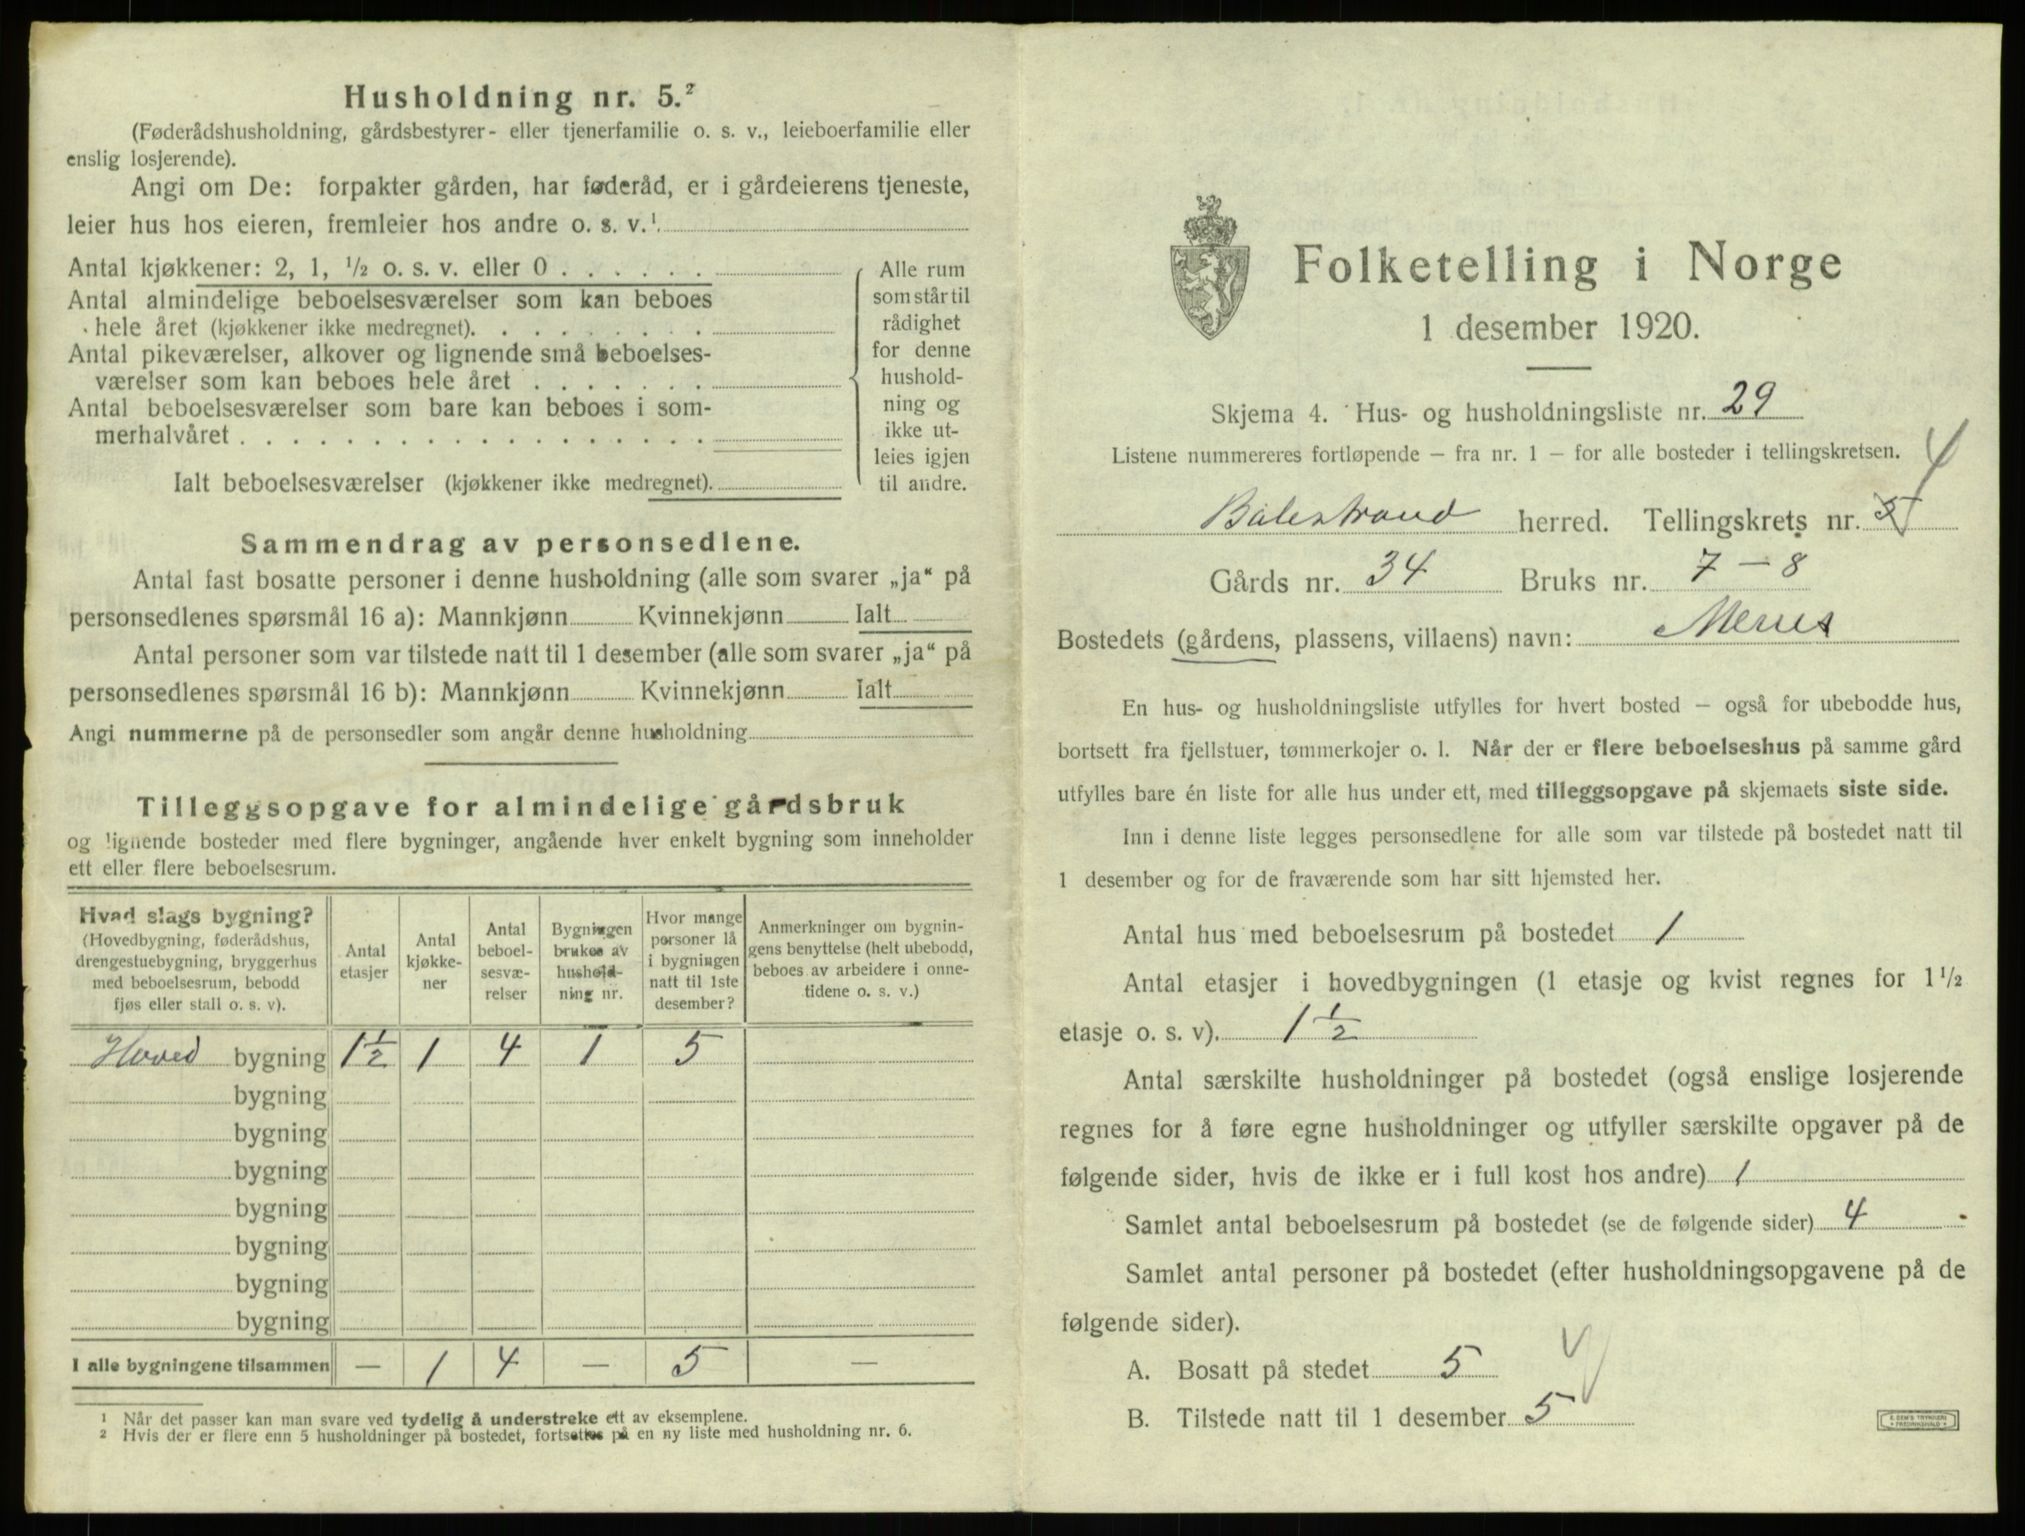 Husholdning nr. 5.²
(Føderådshusholdning, gårdsbestyrer- eller tjenerfamilie o. s. v., leieboerfamilie eller
enslig losjerende).
Angi om De: forpakter gården, har føderåd, er i gårdeierens tjeneste,
leier hus hos eieren, fremleier hos andre o. s. v.¹
Antal kjøkkener: 2, 1, ½ o. s. v. eller 0 . . . . . .
Antal almindelige beboelsesværelser som kan beboes
hele året (kjøkkener ikke medregnet). . . . . . . . .
Antal pikeværelser, alkover og lignende små beboelses-
værelser som kan beboes hele året . . . . . . .
Antal beboelsesværelser som bare kan beboes i som-
merhalvåret . . . . . . . . . . . . . . . . . .
Ialt beboelsesværelser (kjøkkener ikke medregnet).
Alle rum
som står til
rådighet
for denne
hushold-
ning og
ikke ut-
leies igjen
til andre.
Sammendrag av personsedlene.
Antal fast bosatte personer i denne husholdning (alle som svarer „ja“ på
personsedlenes spørsmål 16 a): Mannkjønn Kvinnekjønn Ialt
Antal personer som var tilstede natt til 1 desember (alle som svarer „ja“ på
personsedlenes spørsmål 16 b): Mannkjønn Kvinnekjønn Ialt
Angi nummerne på de personsedler som angår denne husholdning
Tilleggsopgave for almindelige gårdsbruk
og lignende bosteder med flere bygninger, angående hver enkelt bygning som inneholder
ett eller flere beboelsesrum.
Hvad slags bygning?
(Hovedbygning, føderådshus,
drengestuebygning, bryggerhus
med beboelsesrum, bebodd
fjøs eller stall o. s. v).
Antal
etasjer
Antal
kjøkke-
ner
Antal
beboel-
sesvæ-
relser
Bygningen
brukes av
hushold-
ning nr.
Hvor mange
personer lå
i bygningen
natt til 1ste
desember?
Anmerkninger om bygnin-
gens benyttelse (helt ubebodd,
beboes av arbeidere i onne-
tidene o. s. v.)
Hoved bygning 1½ 1 4 1 5
bygning
bygning
bygning
bygning
bygning
bygning
bygning
I alle bygningene tilsammen — 1 4 — 5 —
1 Når det passer kan man svare ved tydelig å understreke ett av eksemplene.
2 Hvis der er flere enn 5 husholdninger på bostedet, fortsettes på en ny liste med husholdning nr. 6.
Folketelling i Norge
1 desember 1920.
Skjema 4. Hus- og husholdningsliste nr. 29
Listene nummereres fortløpende — fra nr. 1 — for alle bosteder i tellingskretsen.
4
Balestrand herred. Tellingskrets nr. 5
Gårds nr. 34 Bruks nr. 7 — 8
Bostedets (gårdens, plassens, villaens) navn: Menes
En hus- og husholdningsliste utfylles for hvert bosted — også for ubebodde hus,
bortsett fra fjellstuer, tømmerkojer o. l. Når der er flere beboelseshus på samme gård
utfylles bare én liste for alle hus under ett, med tilleggsopgave på skjemaets siste side.
Inn i denne liste legges personsedlene for alle som var tilstede på bostedet natt til
1 desember og for de fraværende som har sitt hjemsted her.
Antal hus med beboelsesrum på bostedet 1
Antal etasjer i hovedbygningen (1 etasje og kvist regnes for 1 ½
etasje o. s. v). 1½
Antal særskilte husholdninger på bostedet (også enslige losjerende
regnes for å føre egne husholdninger og utfyller særskilte opgaver på de
følgende sider, hvis de ikke er i full kost hos andre) 1
Samlet antal beboelsesrum på bostedet (se de følgende sider) 4
Samlet antal personer på bostedet (efter husholdningsopgavene på de
følgende sider).
A. Bosatt på stedet 5
B. Tilstede natt til 1 desember 5